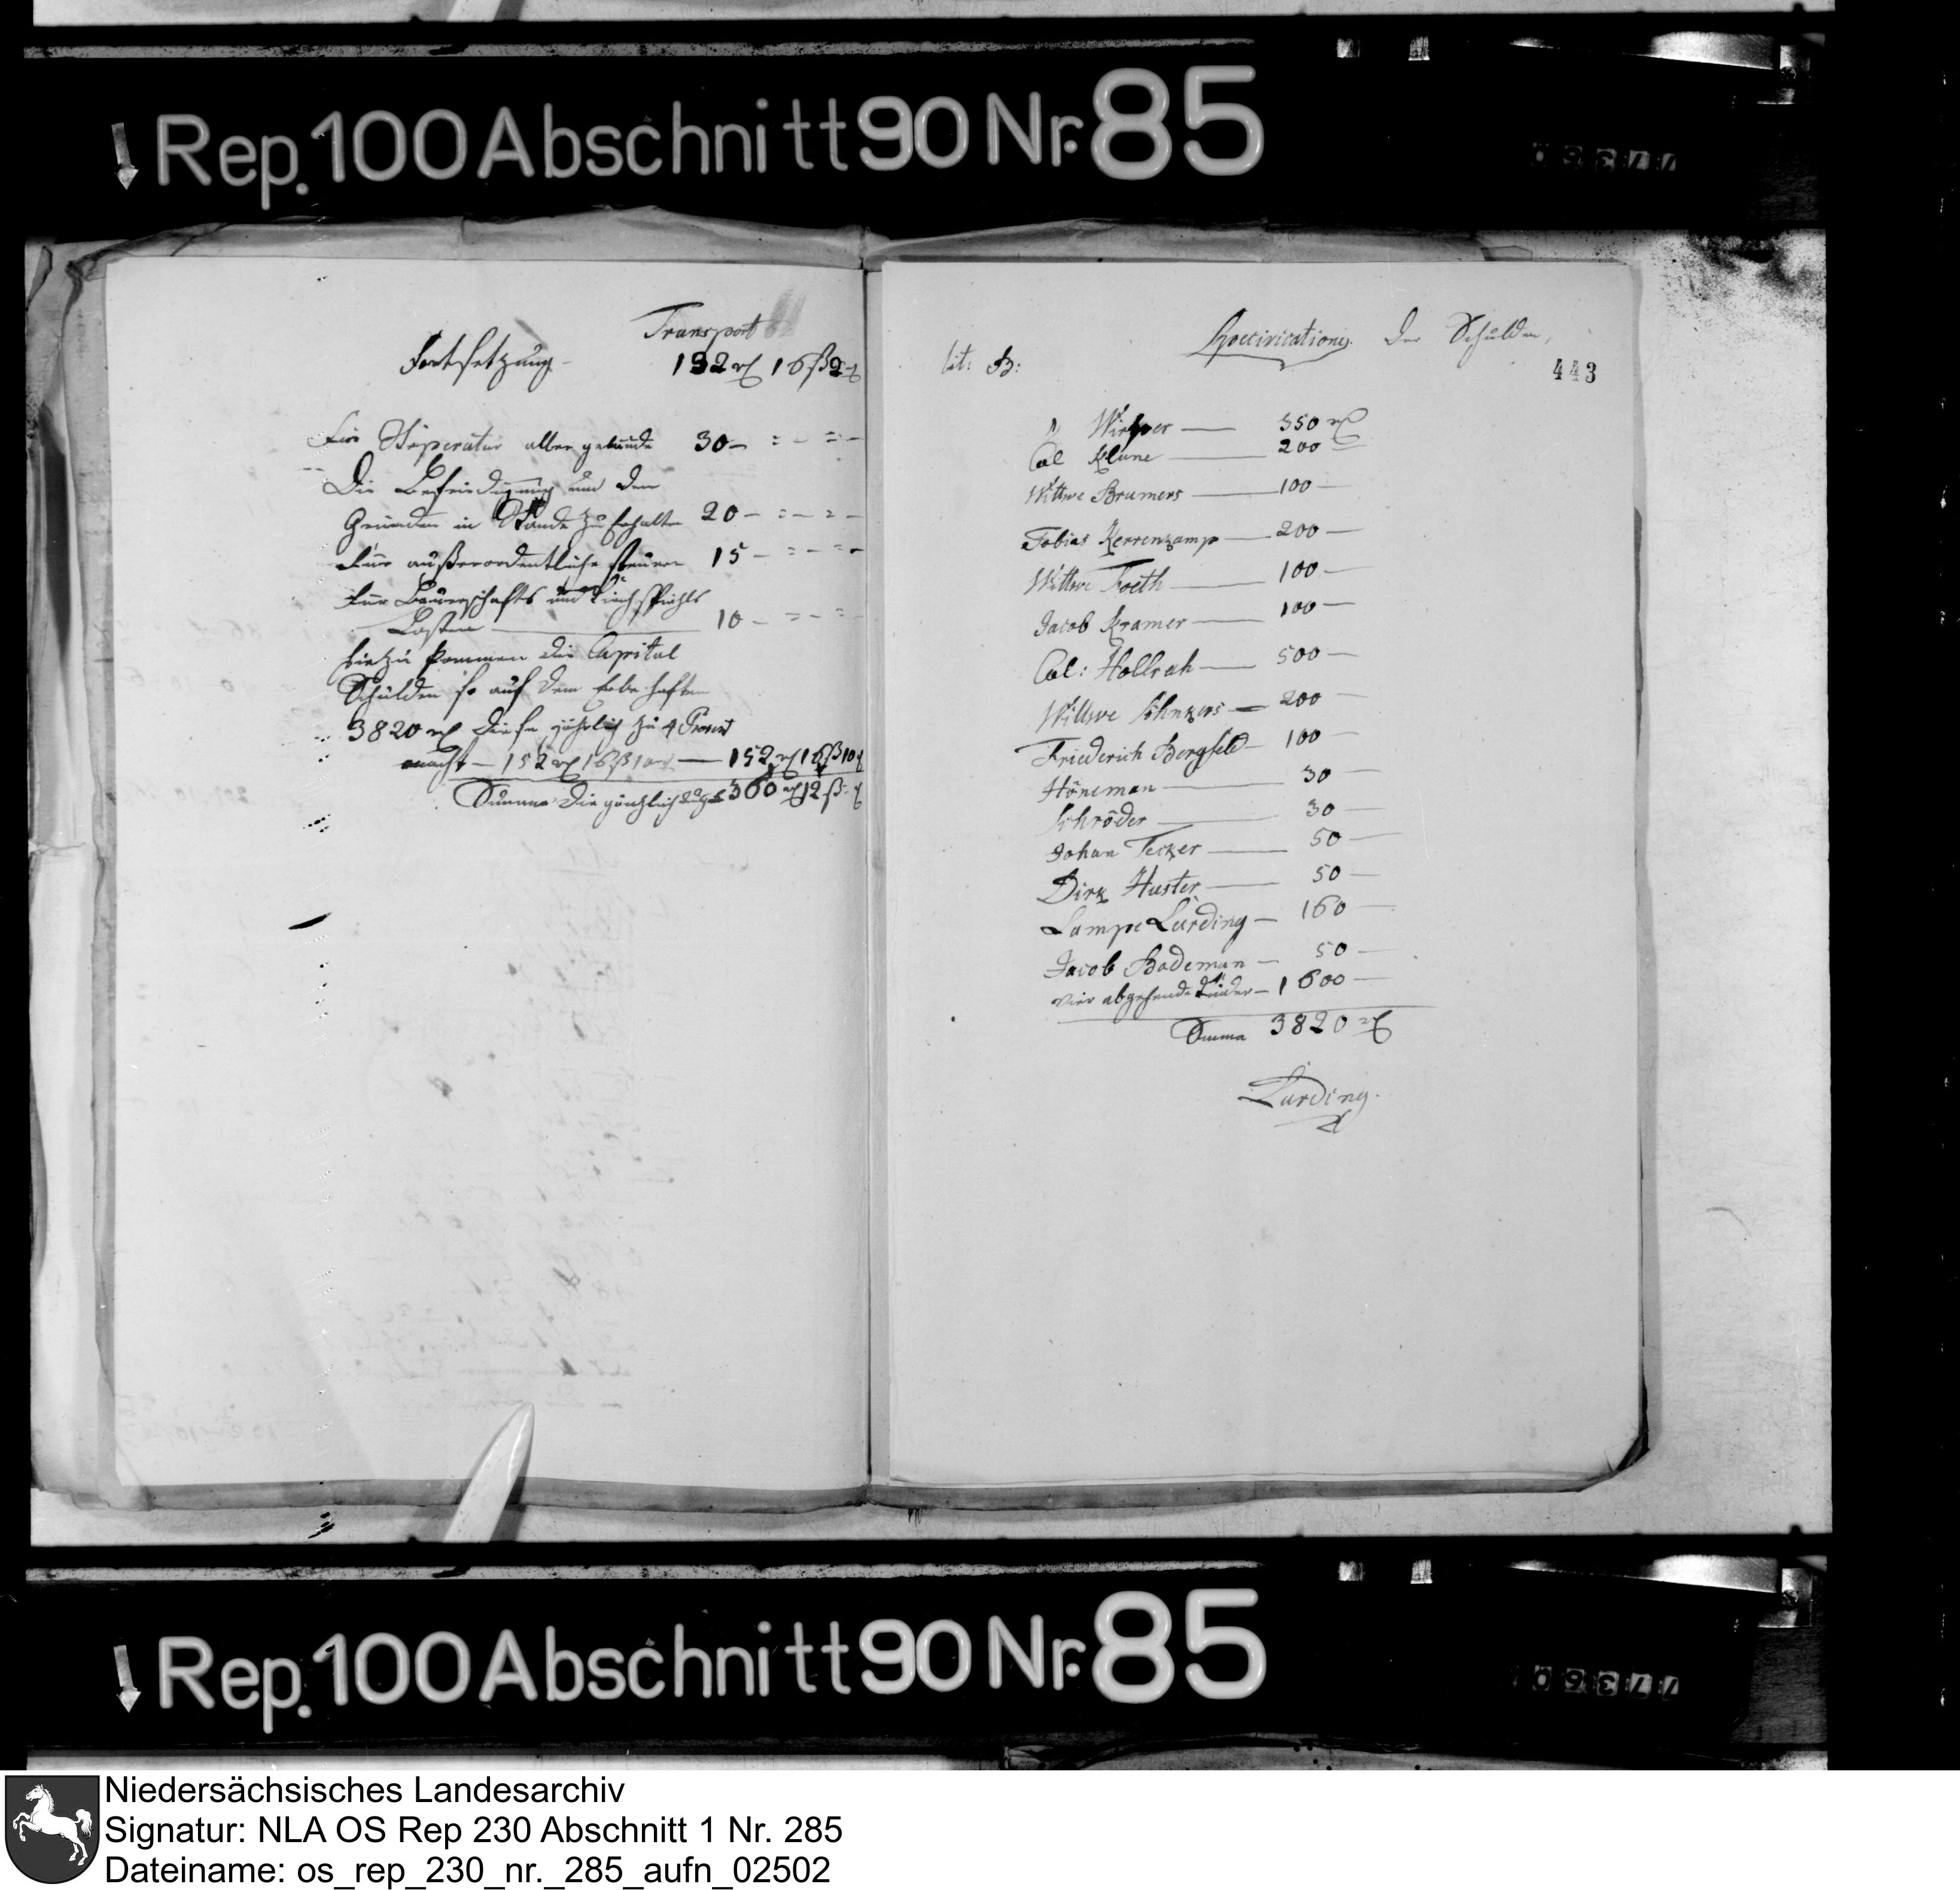 Rep. 100 Abschnitt 90 Nr. 85
Transport
Fortsetzung 132 rl 16 ß 2
Für Reperatur aller gebäude 30
Die Befriedigung und den
Gründen in Stande zu Erhalten 20
Für außerordentliche steuern 15
Für Bauerschafts und Kirchspiehls
Lasten 10
hiezu kommen die Capital
Schulden so auf dem Erbe haften
3820 rl diese jährlich zu 4 Procent
macht 152 rl 16 ß 10 152 rl 16 ß 10
Summa die gänzliche 360 rl 12 ß
Specivicatione der Schulden,
lit: B:
443
350 rl
Col Klune 200
Wittwe Brumers 100
Tobias Kerrenkamp 200
Wittwe Foeth 100
Jacob Kramer 100
Col: Hollrah 500
Wittwe Schnkers 200
Friederich Bergfeld 100
Höneman 30
Schröder 30
Johan Tecker 50
Dirk Huster 50
Lampe Lürding 160
Jacob Bodeman 50
vier abgehende Kinder 1600
Summa 3820 rl
Lürding.
Rep. 100 Abschnitt 90 Nr. 85
Niedersächsisches Landesarchiv
Signatur: NLA OS Rep 230 Abschnitt 1 Nr. 285
Dateiname: os_rep_230_nr._285_aufn_02502